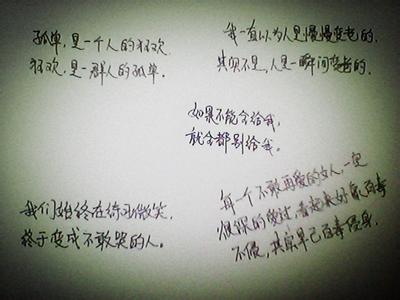 孤单,是一个人的狂欢
狂欢,是一群人的孤单.
我一直以为人是慢慢变老的,
其实不是,人是一瞬间变老的.
如果不能全给我,
就全都别给我。
我们始终在练习微笑,
终于变成不敢哭的人。
每一个不敢再爱的女人,一定
狠狠的爱过,看起来好像百毒
不侵,其实早已百毒侵身.